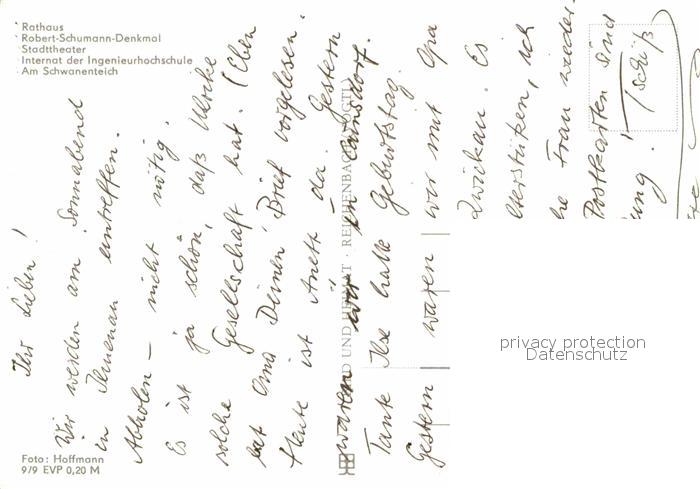 Rathaus
Robert-Schumann-Denkmal
Stadttheater
Internat der Ingenieurhochschule
Am Schwanenteich
Ihr Lieben!
Wir werden am Sonnabend
in Ilmenau eintreffen.
Abholen – nicht nötig.
Es ist ja schön, daß Ulrike
solche Gesellschaft hat. (Eben
hat Oma Deinen Brief vorgelesen.
Heute ist Anett da. Gestern
waren wir in Cainsdorf.
Tante Ilse hatte Geburtstag.
Gestern waren wir mit Opa
Zwickau. Es
ich
Frau wieder-
Postkarten sind
ung! Tschüß
BILD UND HEIMAT · REICHENBACH (VOGTL)
Foto: Hoffmann
9/9 EVP 0,20 M
privacy protection
Datenschutz